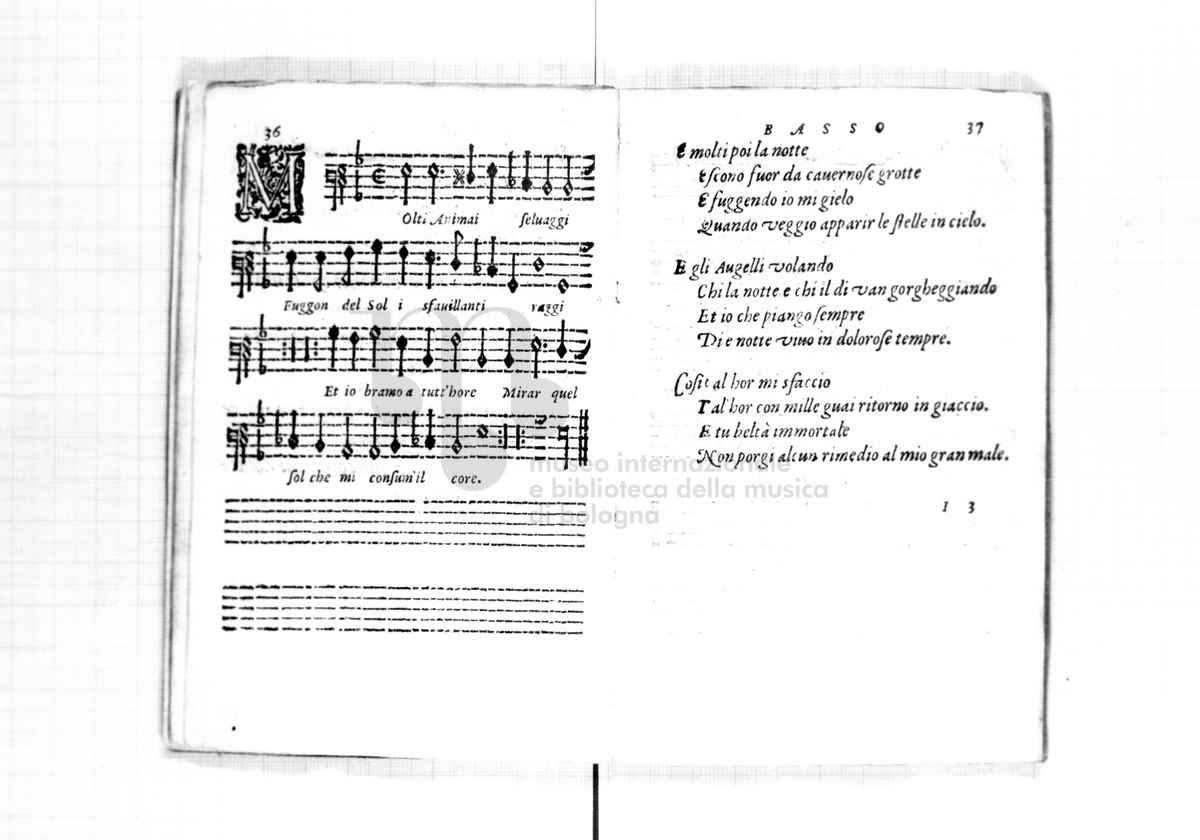 36
MOlti Animai seluaggi
Fuggon del Sol i sfauillanti raggi
Et io bramo a tutt'hore Mirar quel
sol che mi consum'il core.
BASSO 37
E molti poi la notte
Escono fuor da cauernose grotte
E fuggendo io mi gielo
Quando veggio apparir le stelle in cielo.
E gli Augelli volando
Chi la notte e chi il di van gorgheggiando
Et io che piango sempre
Di e notte viuo in dolorose tempre.
Cosi tal hor mi sfaccio
Tal hor con mille guai ritorno in giaccio.
E tu beltà immortale
Non porgi alcun rimedio al mio gran male.
I 3
museo internazionale
e biblioteca della musica
di bologna